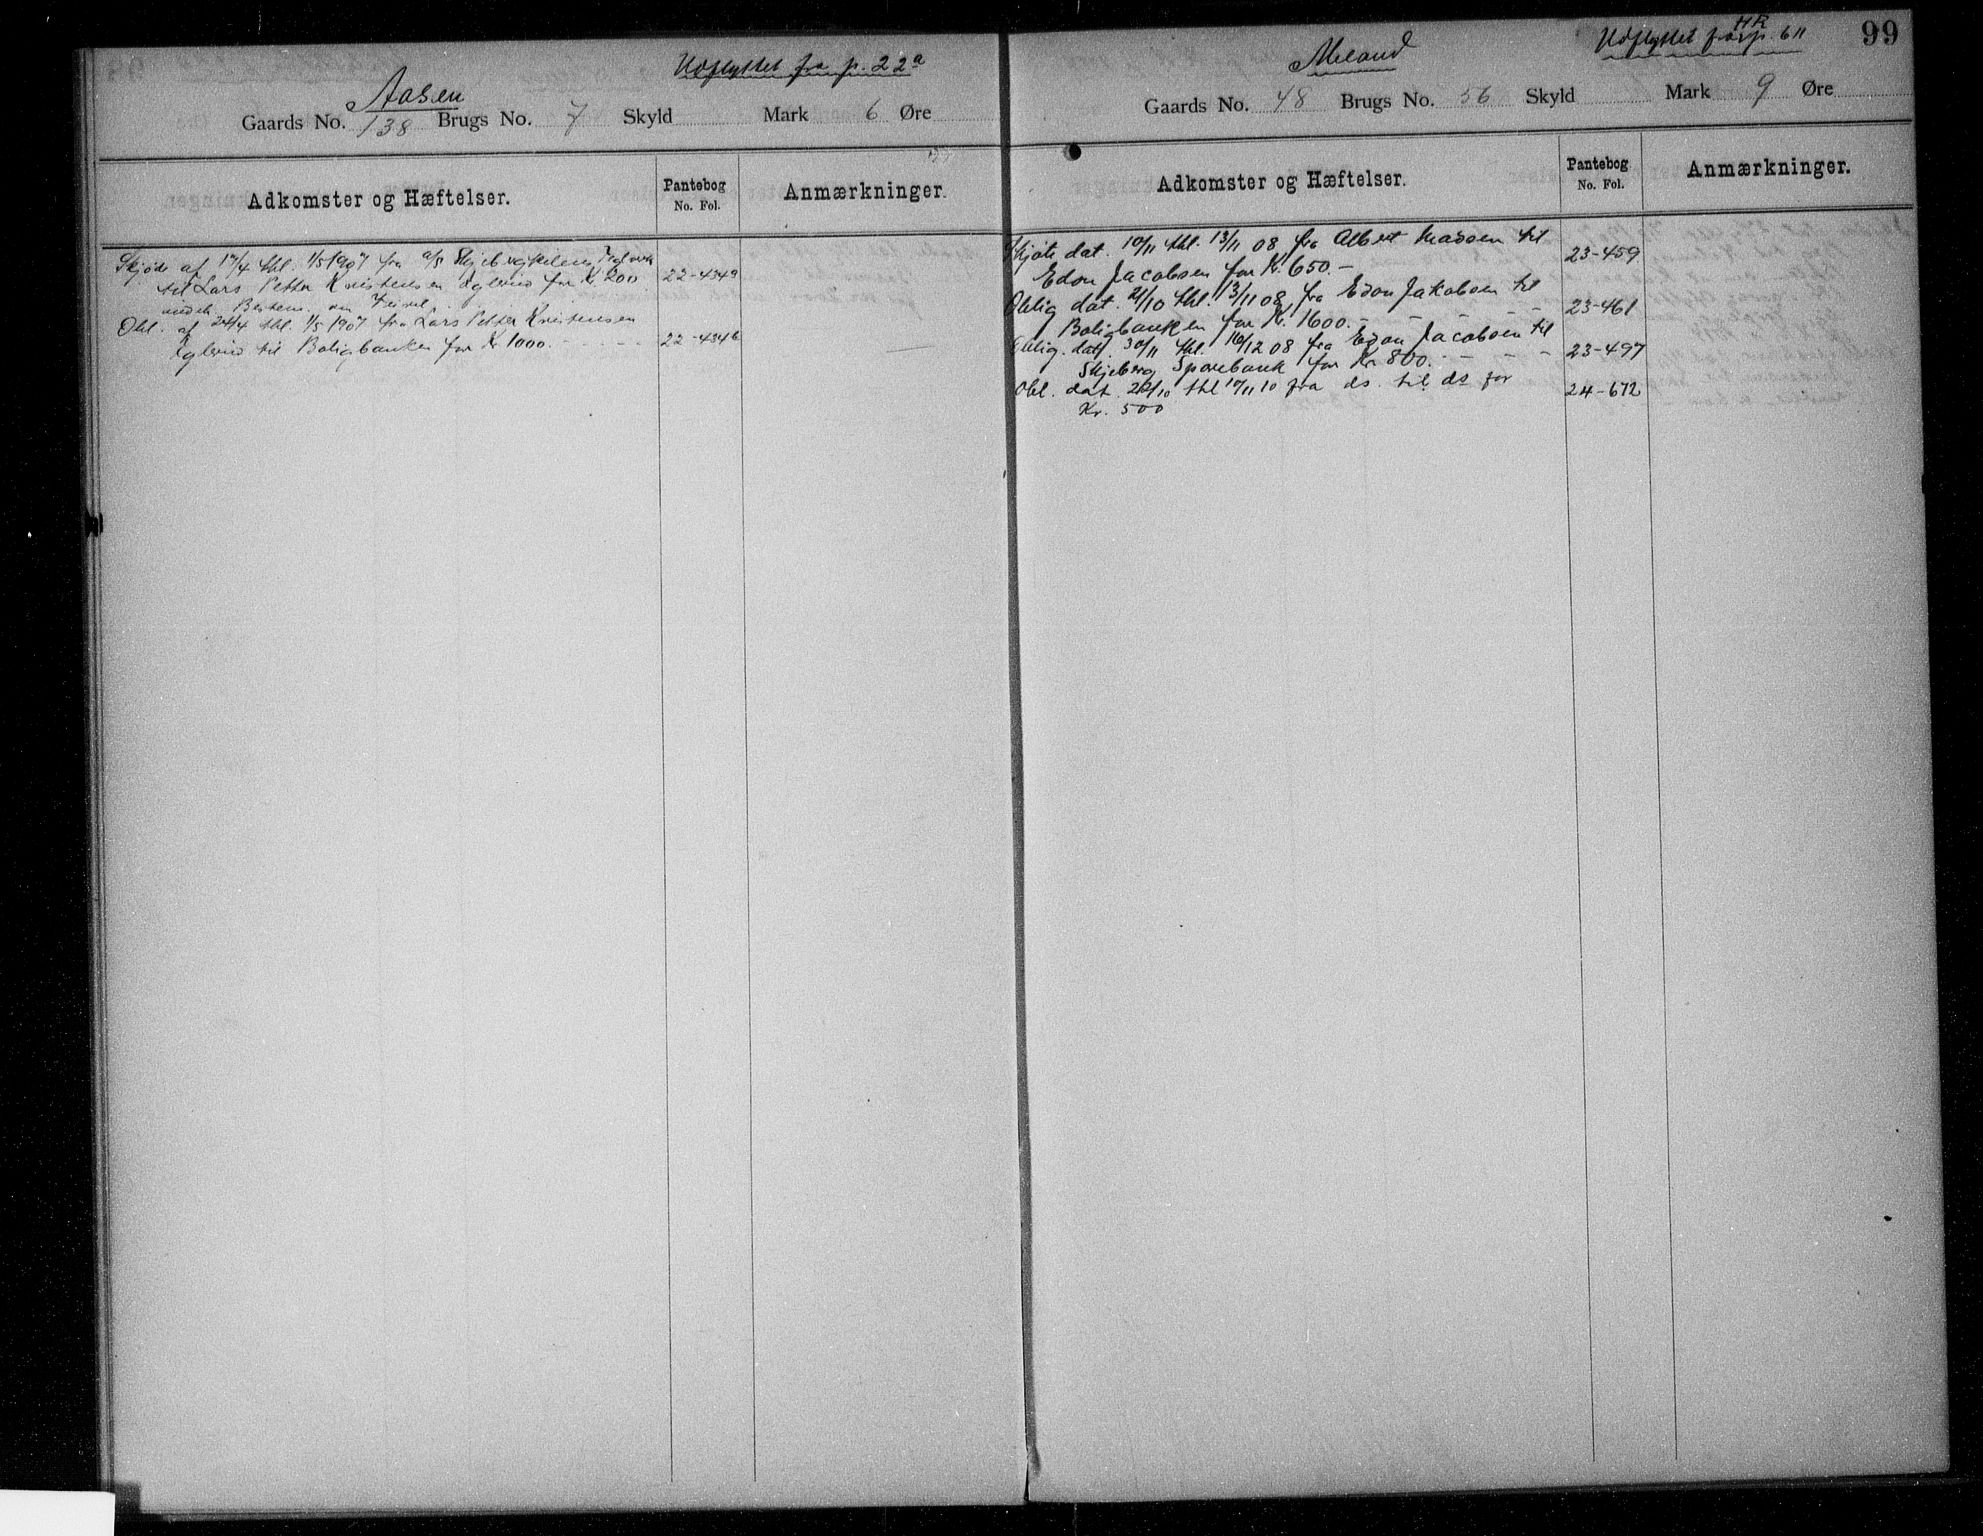 Udflyttet fra p. 22a
Aasen
Gaards No. 138 Brugs No. 7 Skyld Mark 6 Øre
Adkomster og Hæftelser.
Pantebog
No. Fol.
Anmærkninger.
Skjøde af 17/4 thl. 1/5 1907 fra a/s Skjebergkilens Teglverk
til Lars Petter Kristensen for Kr. 200 22-434a
Obl. af 24/4 thl. 1/5 1907 fra Lars Petter Kristensen
til Boligbanken for Kr. 1000. - - - - - 22-434b
99
Udflyttet fra HR p. 611
Meland
Gaards No. 48 Brugs No. 56 Skyld Mark 9 Øre
Adkomster og Hæftelser.
Pantebog
No. Fol.
Anmærkninger.
Skjøte dat. 10/11 thl. 13/11 08 fra Albert Madsen til
Edon Jacobsen for Kr. 650. - 23-459
Oblig dat. 21/10 thl. 13/11 08, fra Edon Jakobsen til
Boligbanken for Kr. 1600. - - - - - 23-461
Oblig. dat. 30/11 thl. 16/12 08 fra Edon Jacobsen til
Skjeberg Sparebank for Kr. 800. - - - - 23-497
Obl. dat. 22/10 thl 10/11 10 fra ds. til ds for 24-672
Kr. 500